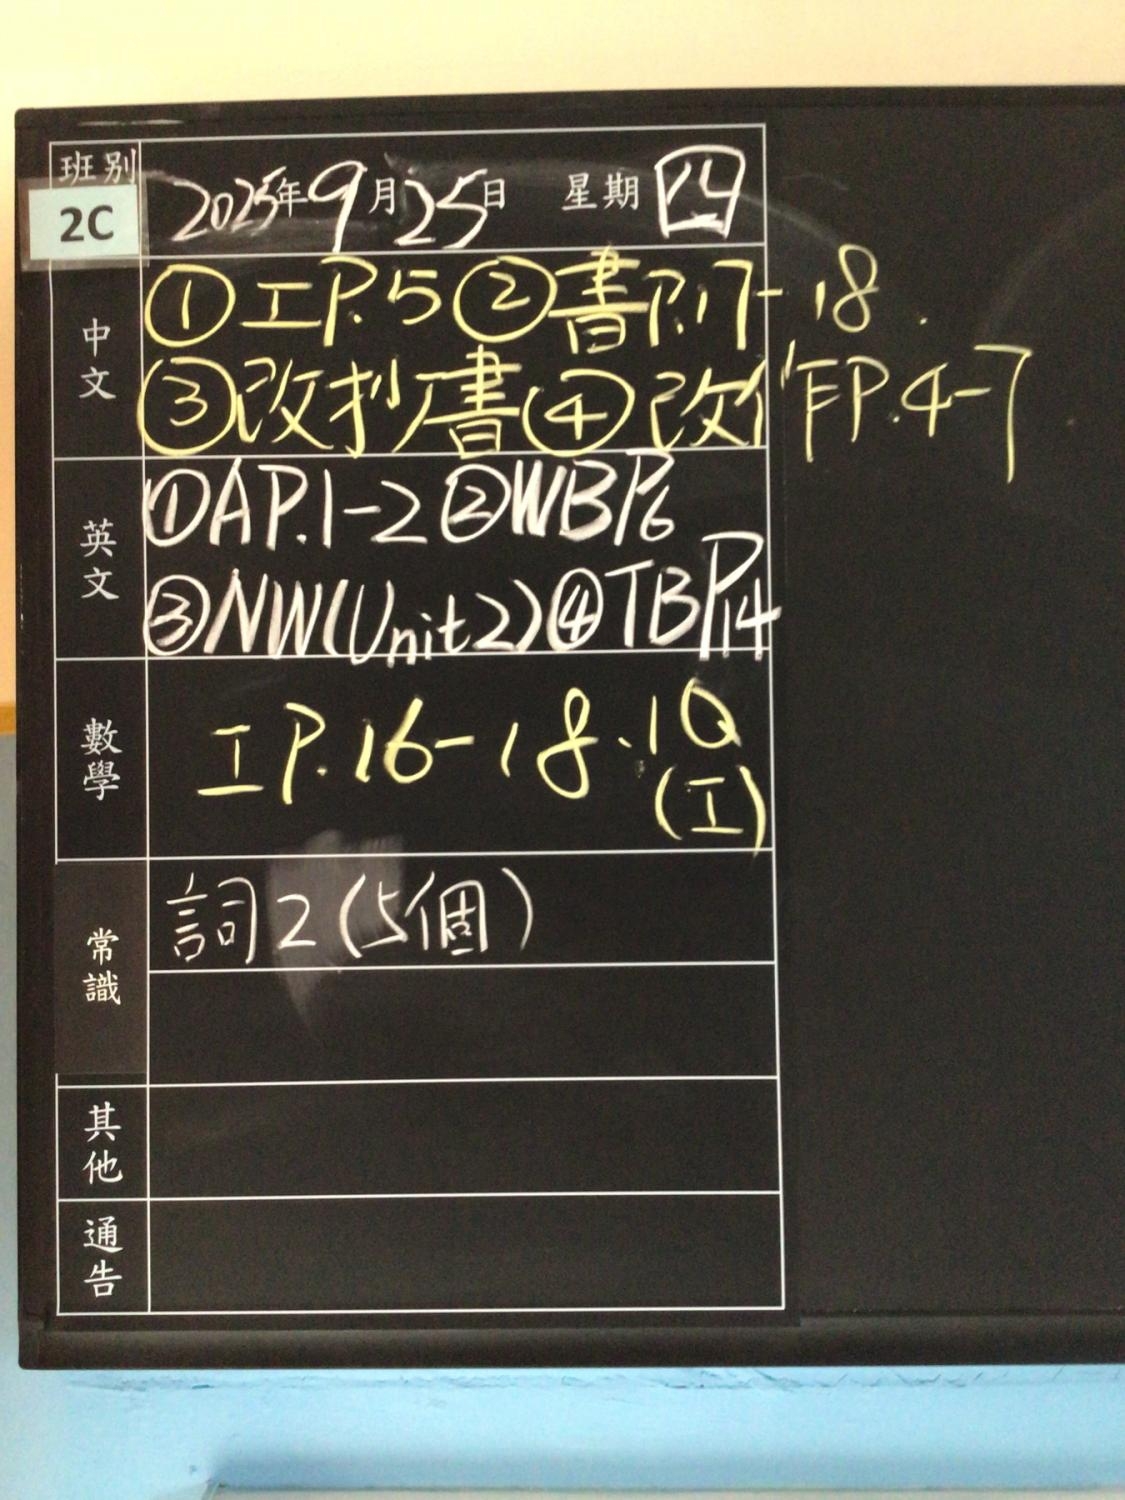 班別
2C
2025年9月25日 星期四
中文
①工P.5 ②書P.17-18.
③改抄書 ④改作P.4-7
英文
①AP.1-2 ②WBP6
③NW(Unit2) ④TBP14
數學
工P.16-18、1Q
(工)
常識
詞2(5個)
其他
通告